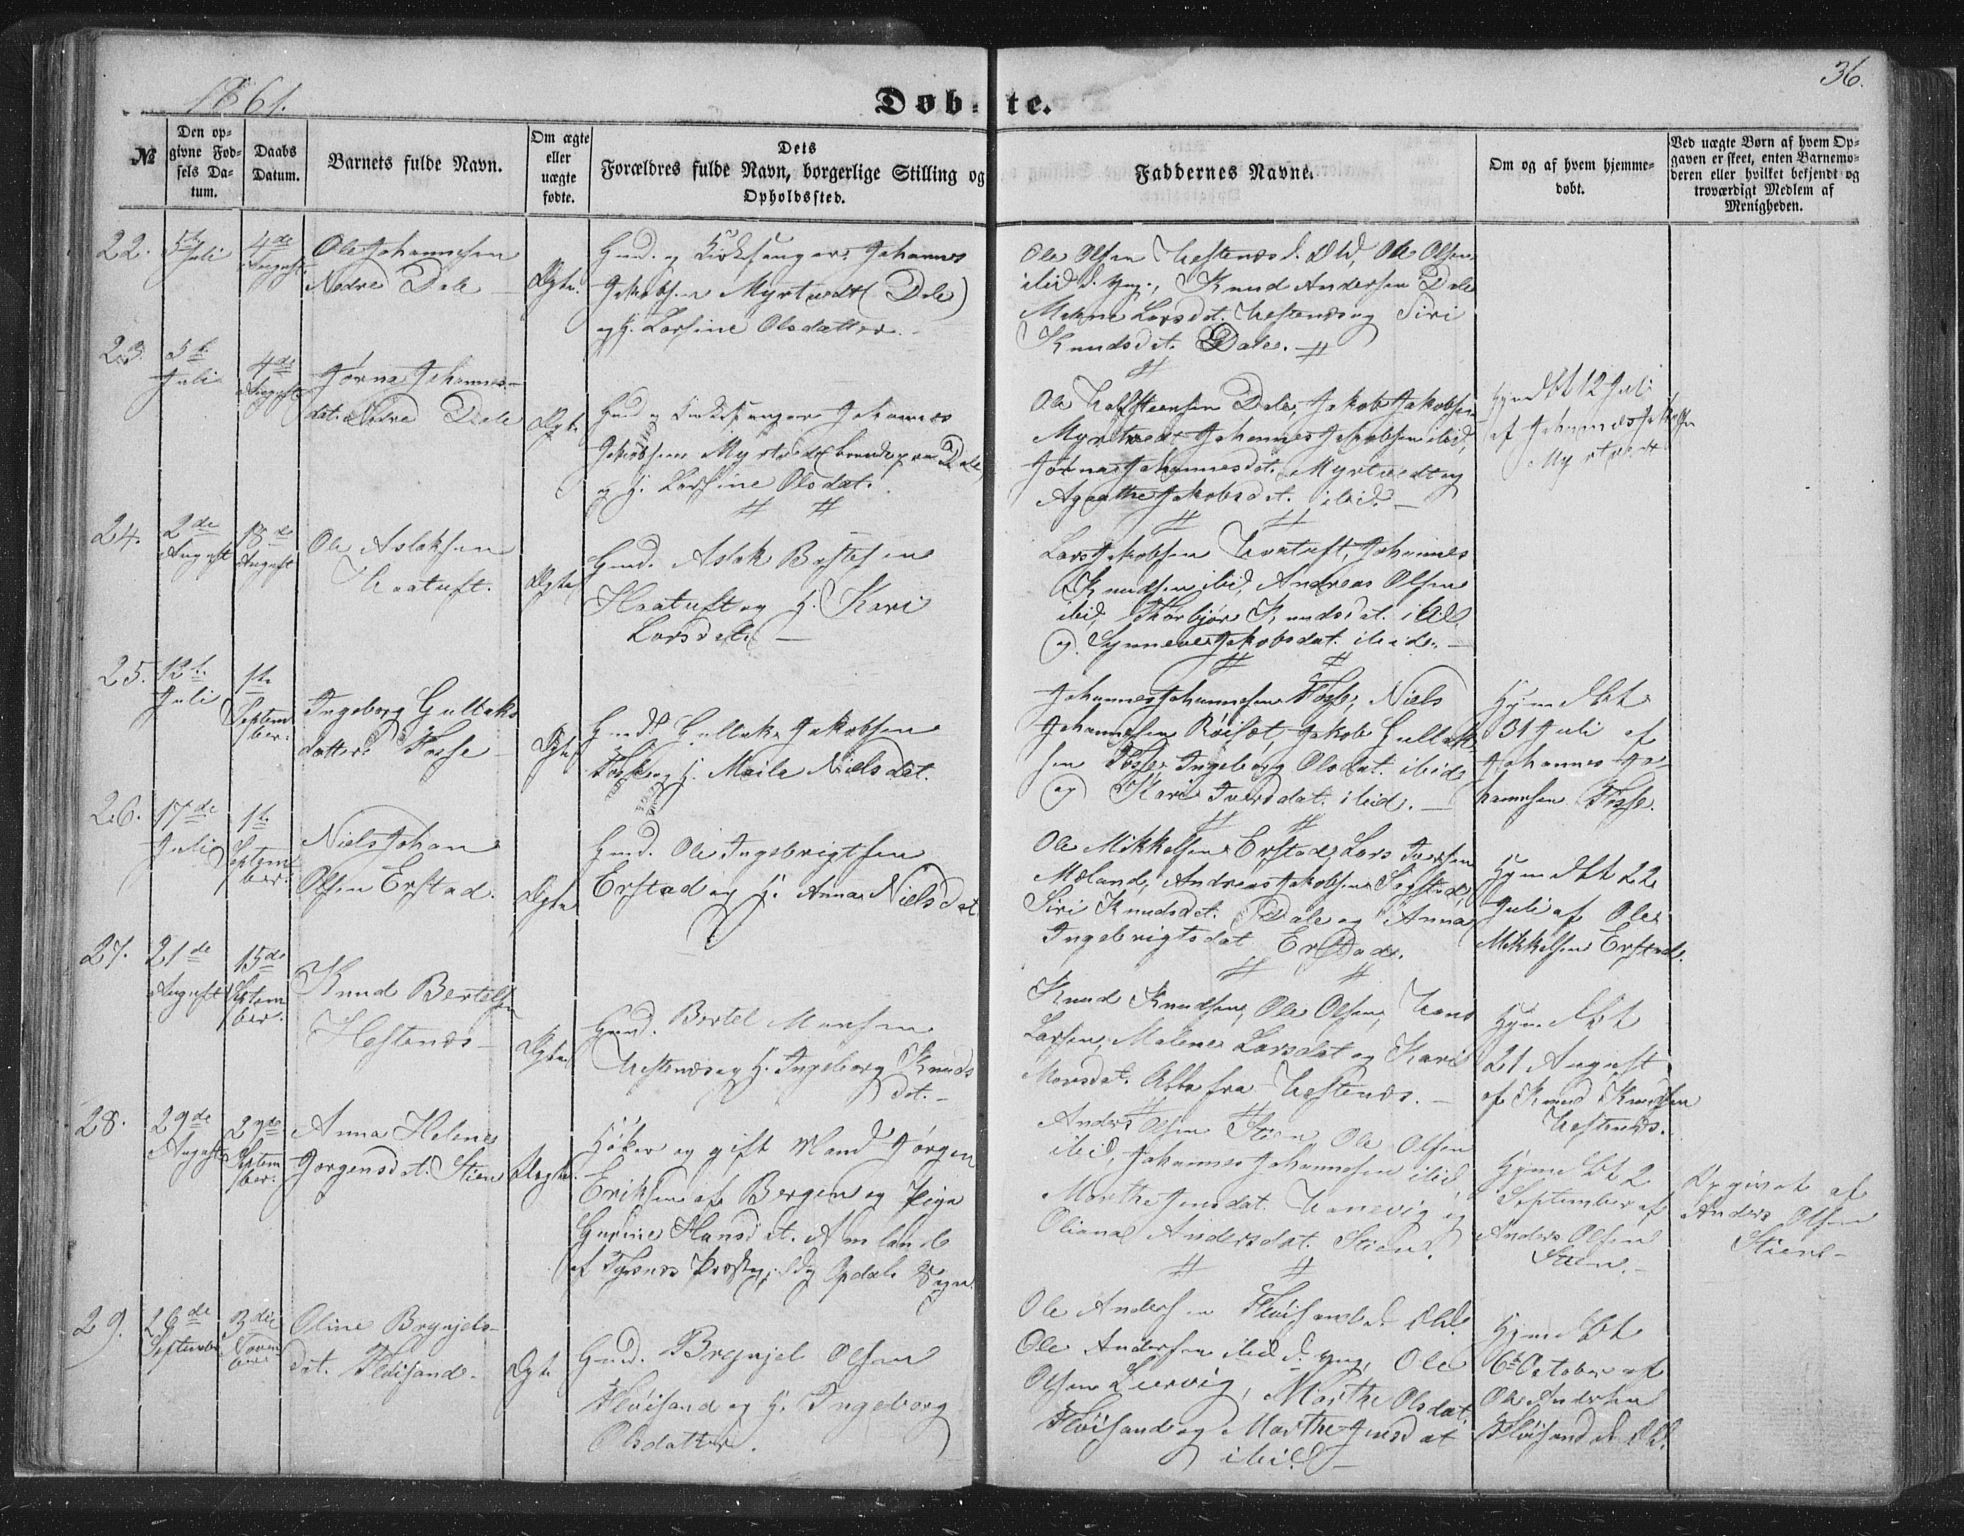 1861.
Døbte.
36.
№
Den op-
givne Fød-
sels Da-
tum.
Daabs
Datum.
Barnets fulde Navn.
Om ægte
eller
uægte
fødte.
Dets
Forældres fulde Navn, borgerlige Stilling og
Opholdssted.
Faddernes Navne.
Om og af hvem hjemme-
døbt.
Ved uægte Børn af hvem Op-
gaven er skeet, enten Barnemo-
deren eller hvilket bekjendt og
troværdigt Medlem af
Menigheden.
22.
Juli
4de
August
Ole Johannesen
Nedre Dale
Ægte.
Gmd. og Kirkesanger Johannes
Jakobsen Myrtvedt (Dale)
og H. Larsine Olsdatter.
Ole Olsen Hestenæs d. Æld, Ole Olsen
ibid d. yng., Knud Andersen Dale
Malene Larsdat. Hestenæs og Siri
Knudsdat. Dale.
23.
5t.
Juli
4de
August
Jørna Johannes-
dat. Nedre Dale
Ægt.
Gmd og Kirkesanger Johannes
Jakobsen Myrtvedt Dale
og H. Larsine Olsdat.
Ole Halsteensen Dale, Jakob Jakobsen
Myrtvedt Johannes Jakobsen ibid,
Jørna Johannesdat. Myrtvedt og
Agathe Jakobsdat. ibid.
Hjmdbt 12 Juli
af Johannes Jakobsen
Myrtvedt
24.
2de
August
18de
August
Ole Aslaksen
Haatuft.
Ægte,
Gmd. Aslak
Haatuft og H. Kari
Larsdat.
Lars Jakobsen Haatuft, Johannes
Knudsen ibid, Andreas Olsen
ibid, Thorbjør Knudsdat. ibid
og Synneve Jakobsdat. ibid.
25.
12t.
Juli
1ste
Septem
ber.
Ingeborg Gullaks
datter Fosse
Ægte
Gmd Gullak Jakobsen
Fosse og H. Marta Nielsdat.
Johannes Johannesen Fosse, Niels
Johannesen Røiset, Jakob Gullak-
sen Fosse, Ingeborg Olsdat. ibid
og Kari Iversdat. ibid.
Hjemdbt
31 Juli af
Johannes Jo-
hannesen Fosse.
26.
17de
Juli
1st.
Septem
ber.
Niels Johan
Olsen Erstad.
Ægte
Gmd. Ole Ingebrigtsen
Erstad og H. Anna Nielsdat.
Ole Mikkelsen Erstad, Lars Iversen
Mæland, Andreas Jakobsen
Siri Knudsdat. Dale og Anna
Ingebrigtsdat Erstad.
Hjemdbt 22
Juli af Ole
Mikkelsen Erstad.
27.
21de
August
15de
Septem
ber.
Knud Bertelsen
Hestenæs
Ægte
Gmd. Bertel Monsen
Hestenæs og H. Ingeborg Knuds
dat.
Knud Knudsen, Ole Olsen, Hans
Larsen, Malene Larsdat og Kari
Monsdat. Alle fra Hestenæs.
Hjemdbt
21 August
af Knud Knudsen
Hestenæs.
28.
29de
August
29de
Septem
ber.
Anna Helene
Jørgensdat. Stien
Uægte.
Høker og gift Mand Jørgen
Eriksen af Bergen og Pige
Gurine Hansdat. Amland
af Tysnæs Præstegj. Opdals Sogn.
Anders Olsen Stien, Ole Olsen
ibid, Johannes Johannesen ibid,
Marthe Jensdat. Hanevig og
Oliana Andersdat. Stien.
Hjemdbt 2
September af
Anders Olsen
Stien.
Opgivet af
Anders Olsen
Stiene
29.
26de
September
3die
Novem
ber
Oline Brynjels-
dat. Fløisand.
Ægt.
Gmd. Brynjel Olsen
Fløisand og H. Ingeborg
Olsdatter.
Ole Andersen Fløisand d. Æld.
Ole Andersen ibid d. yng, Ole
Olsen Leervig, Marthe Olsdat.
Fløisand og Marthe Jensdat
ibid.
Hjemdbt
6t October af
Ole Andersen
Fløisand d. Æld.